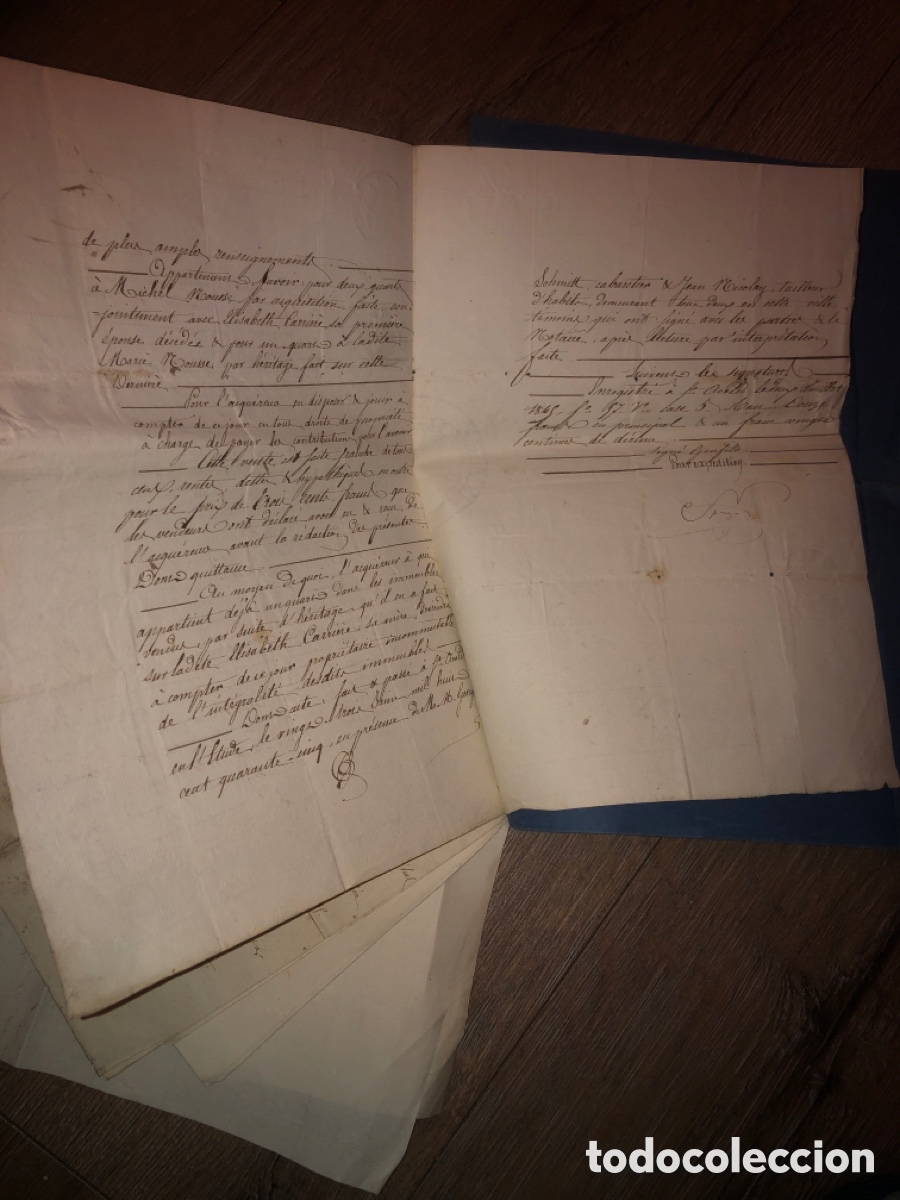 de plus amples renseignements.
Appartenant, savoir, pour deux quarts
à Michel Nousse par acquisition faite con-
-jointement avec Elisabeth Carrière sa première
épouse décédée & pour un quart à ladite
Marie Nousse par héritage fait sur cette
Dernière.
Pour l'acquéreur en disposer & jouir à
compter de ce jour en tous droits de propriété
à charge de payer les contributions pour l'avenir
Cette vente est faite franche de tous
cens, rentes, dettes & hypothèques en outre
pour le prix de trois cents francs que
les vendeurs ont déclaré avoir eu & reçu de
l'acquéreur avant la rédaction des présentes.
Dont quittance.
Au moyen de quoi, l'acquéreur à qui
appartient déjà un quart dans les immeubles
vendus, par suite d'héritage qu'il en a fait
sur ladite Elisabeth Carrière, sa mère,
à compter de ce jour propriétaire incommutable
de l'intégralité desdits immeubles
Dont acte, fait & passé à St.
en l'Etude, le vingt trois Juin mil huit
cent quarante-cinq, en présence de Me. N.
Schmitt, cabaretier & Jean Nicolay, tailleur
d'habits, demeurant tous deux en cette ville
témoins qui ont signé avec les parties & le
Notaire, après lecture par interprétation
faite.
Suivent les signatures
Enregistré à St.
1845. fo. 57 Vo. case 5. Reçu
francs en principal & un franc vingt
centimes de décime.
signé
Pour expédition.
todocoleccion